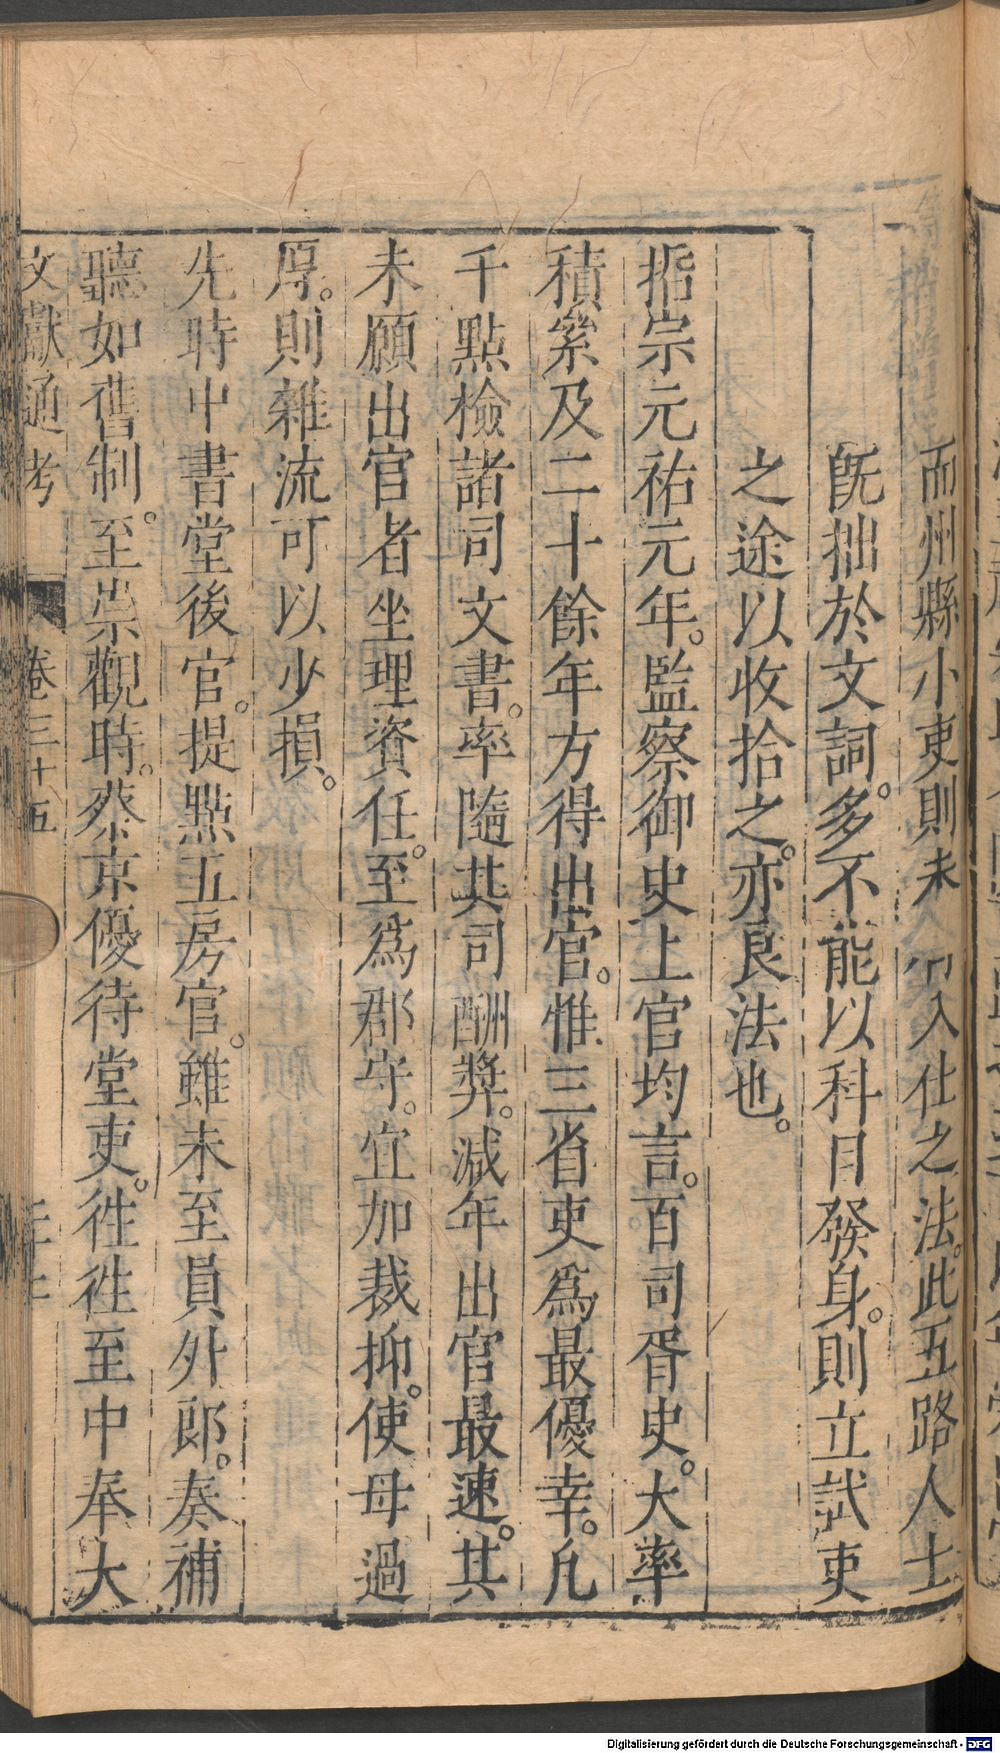 而州縣小吏則未入仕之法。此五路人士
旣拙於文詞。多不能以科目發身。則立試吏
之途以收拾之。亦良法也。
哲宗元祐元年。監察御史上官均言。百司胥史。大率
積絫及二十餘年方得出官。惟三省吏爲最優幸。凡
千點檢諸司文書。率隨其司酬奬。減年出官最速。其
未願出官者坐理資任。至爲郡守。宜加裁抑。使毋過
厚。則雜流可以少損。
先時中書堂後官。提點五房官。雖未至員外郎。奏補
聽如舊制。至崇觀時。蔡京優待堂吏。徃徃至中奉大
文獻通考 卷三十五
Digitalisierung gefördert durch die Deutsche Forschungsgemeinschaft - DFG